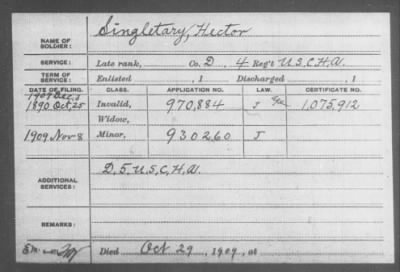 NAME OF SOLDIER: Singletary, Hector
SERVICE: Late rank, Co. D, 4 Reg't U.S.C.H.A.
TERM OF SERVICE: Enlisted , 1 Discharged , 1
DATE OF FILING. CLASS. APPLICATION NO. LAW. CERTIFICATE NO.
1890 Oct. 25 Invalid, 970,884 J 1,075,912
Widow,
1909 Nov 8 Minor, 930260 J
ADDITIONAL SERVICES: D, 5, U.S.C.H.A.
REMARKS:
Died Oct 29, 1909, at